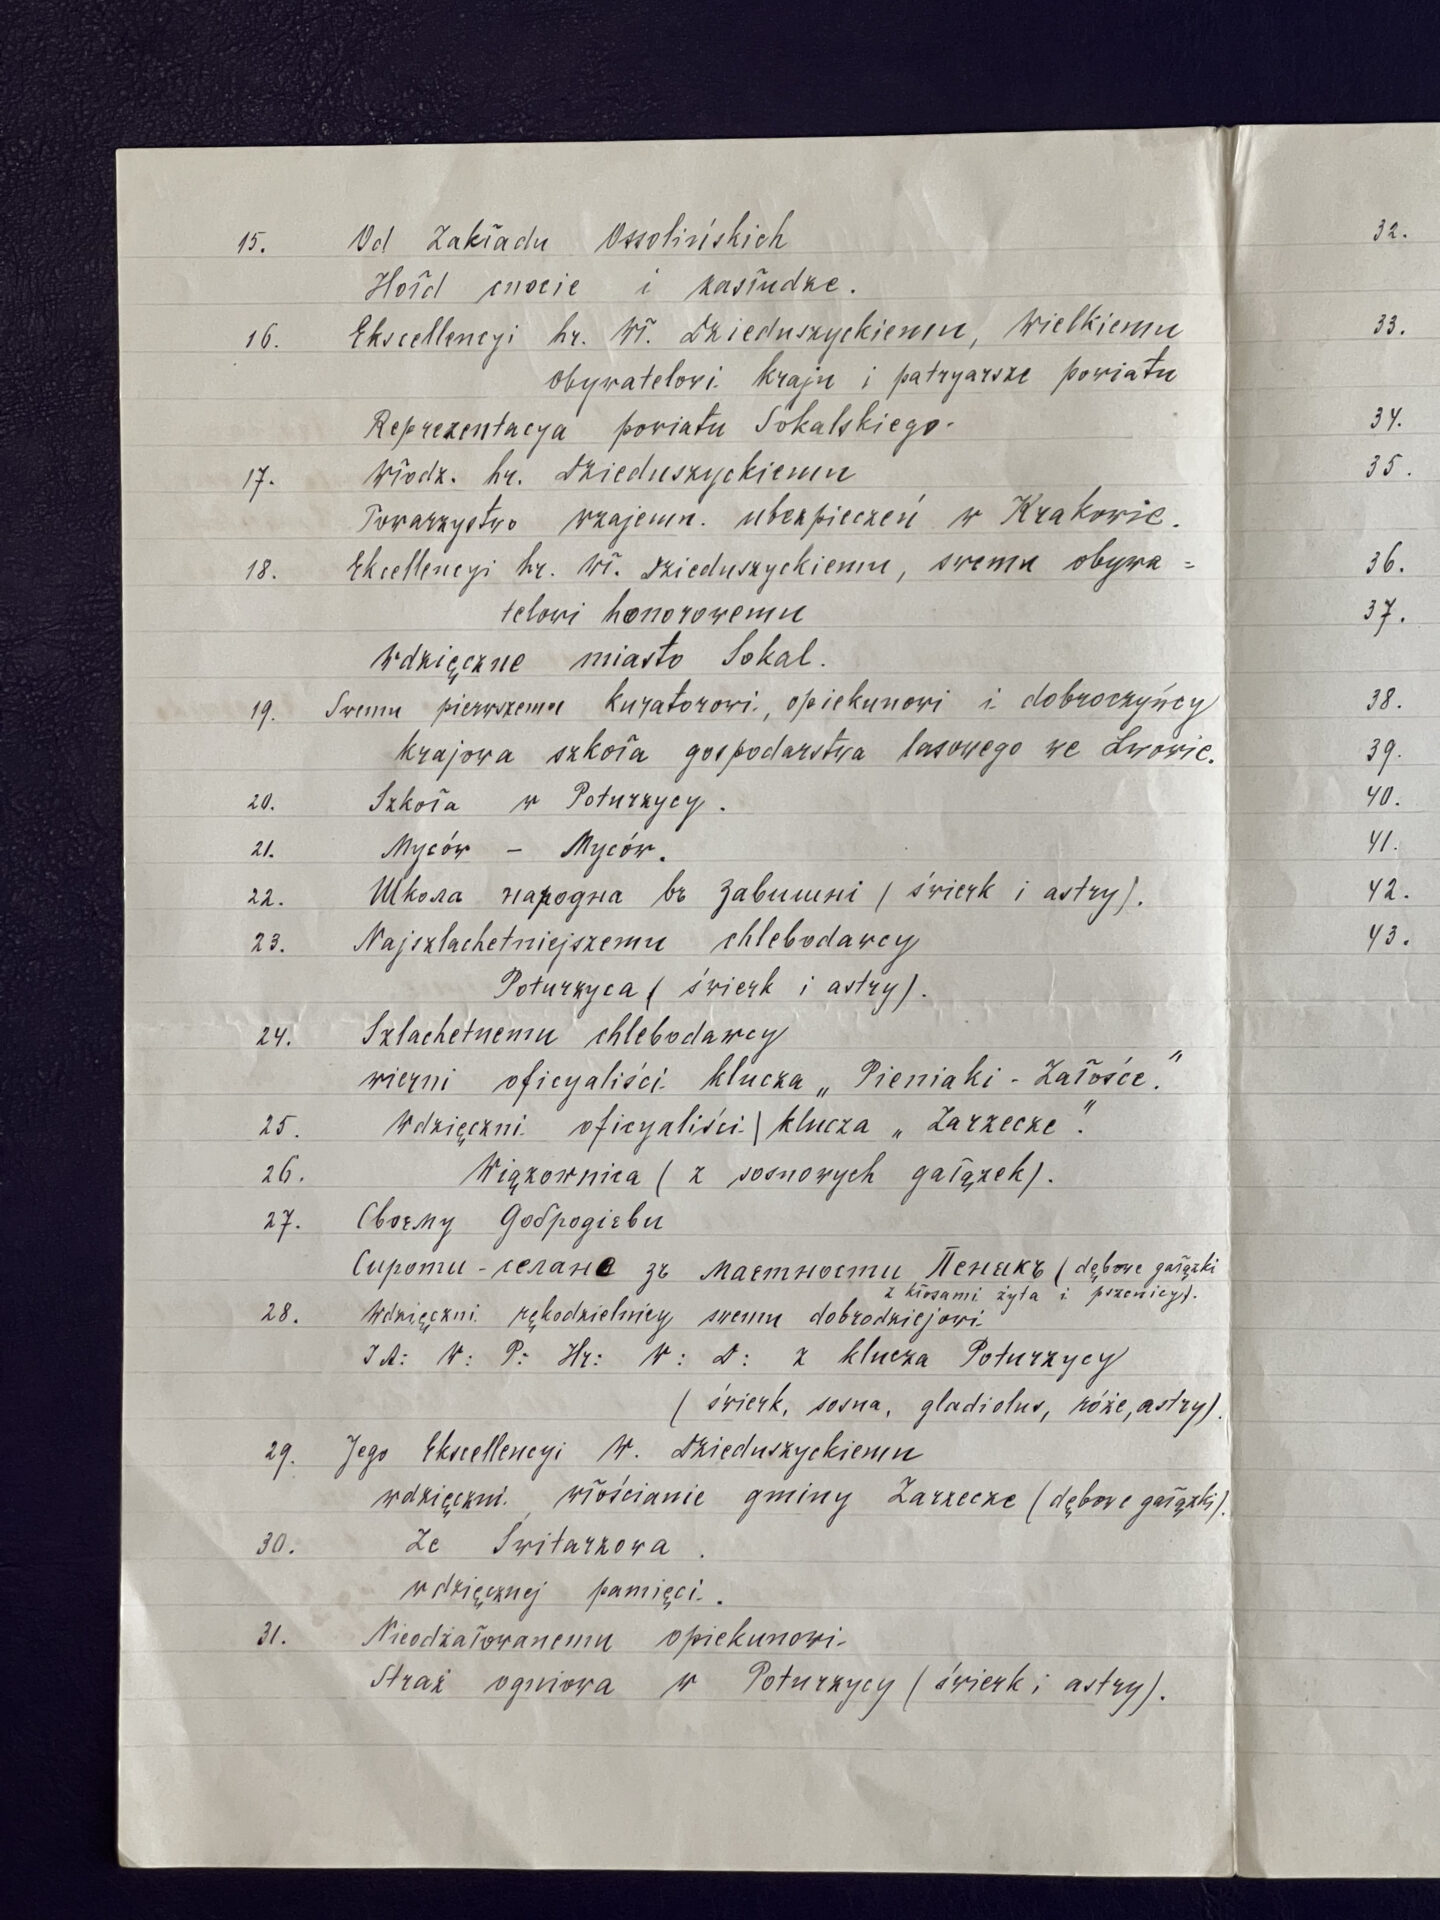 15. Od Zakładu Ossolińskich
Hołd cnocie i zasłudze.
16. Ekscellencyi hr. Wł. Dzieduszyckiemu, Wielkiemu
obywatelowi kraju i patryarsze powiatu
Reprezentacya powiatu Sokalskiego.
17. Włodz. hr. Dzieduszyckiemu
Towarzystwo wzajemn. ubezpieczeń w Krakowie.
18. Ekcellencyi hr. Wł. Dzieduszyckiemu, swemu obywa=
telowi honorowemu
Wdzięczne miasto Sokal.
19. Swemu pierwszemu kuratorowi, opiekunowi i dobroczyńcy
krajowa szkoła gospodarstwa lasowego we Lwowie.
20. Szkoła w Poturzycy.
21. Myców – Myców.
22. Школа народна въ Завишни (świerk i astry).
23. Najszlachetniejszemu chlebodawcy
Poturzyca (świerk i astry).
24. Szlachetnemu chlebodawcy
wierni oficyaliści klucza „Pieniaki - Załośce."
25. Wdzięczni oficyaliści klucza „Zarzecze".
26. Wiązownica (z sosnowych gałązek).
27. Своему Добродієви
Сироти - селяне зъ маетности Пенякъ (dębowe gałązki
z kłosami żyta i pszenicy).
28. Wdzięczni rękodzielnicy swemu dobrodziejowi
JA: W: P: Hr: W: D: z klucza Poturzycy
(świerk, sosna, gladiolus, róże, astry).
29. Jego Ekscellencyi W. Dzieduszyckiemu
wdzięczni włościanie gminy Zarzecze (dębowe gałązki).
30. Ze Świtarzowa.
wdzięcznej pamięci.
31. Nieodżałowanemu opiekunowi
Straż ogniowa w Poturzycy (świerk i astry).
32.
33.
34.
35.
36.
37.
38.
39.
40.
41.
42.
43.